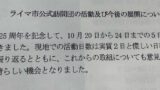 ライマ市公式訪問団の活動及び今後の展開につい
25周年を記念して、10月20日から24日までの5日
した。現地での活動日数は実質2日と慌しい日
り返るとともに、これからの取組についても意見
晴らしい機会となりました。